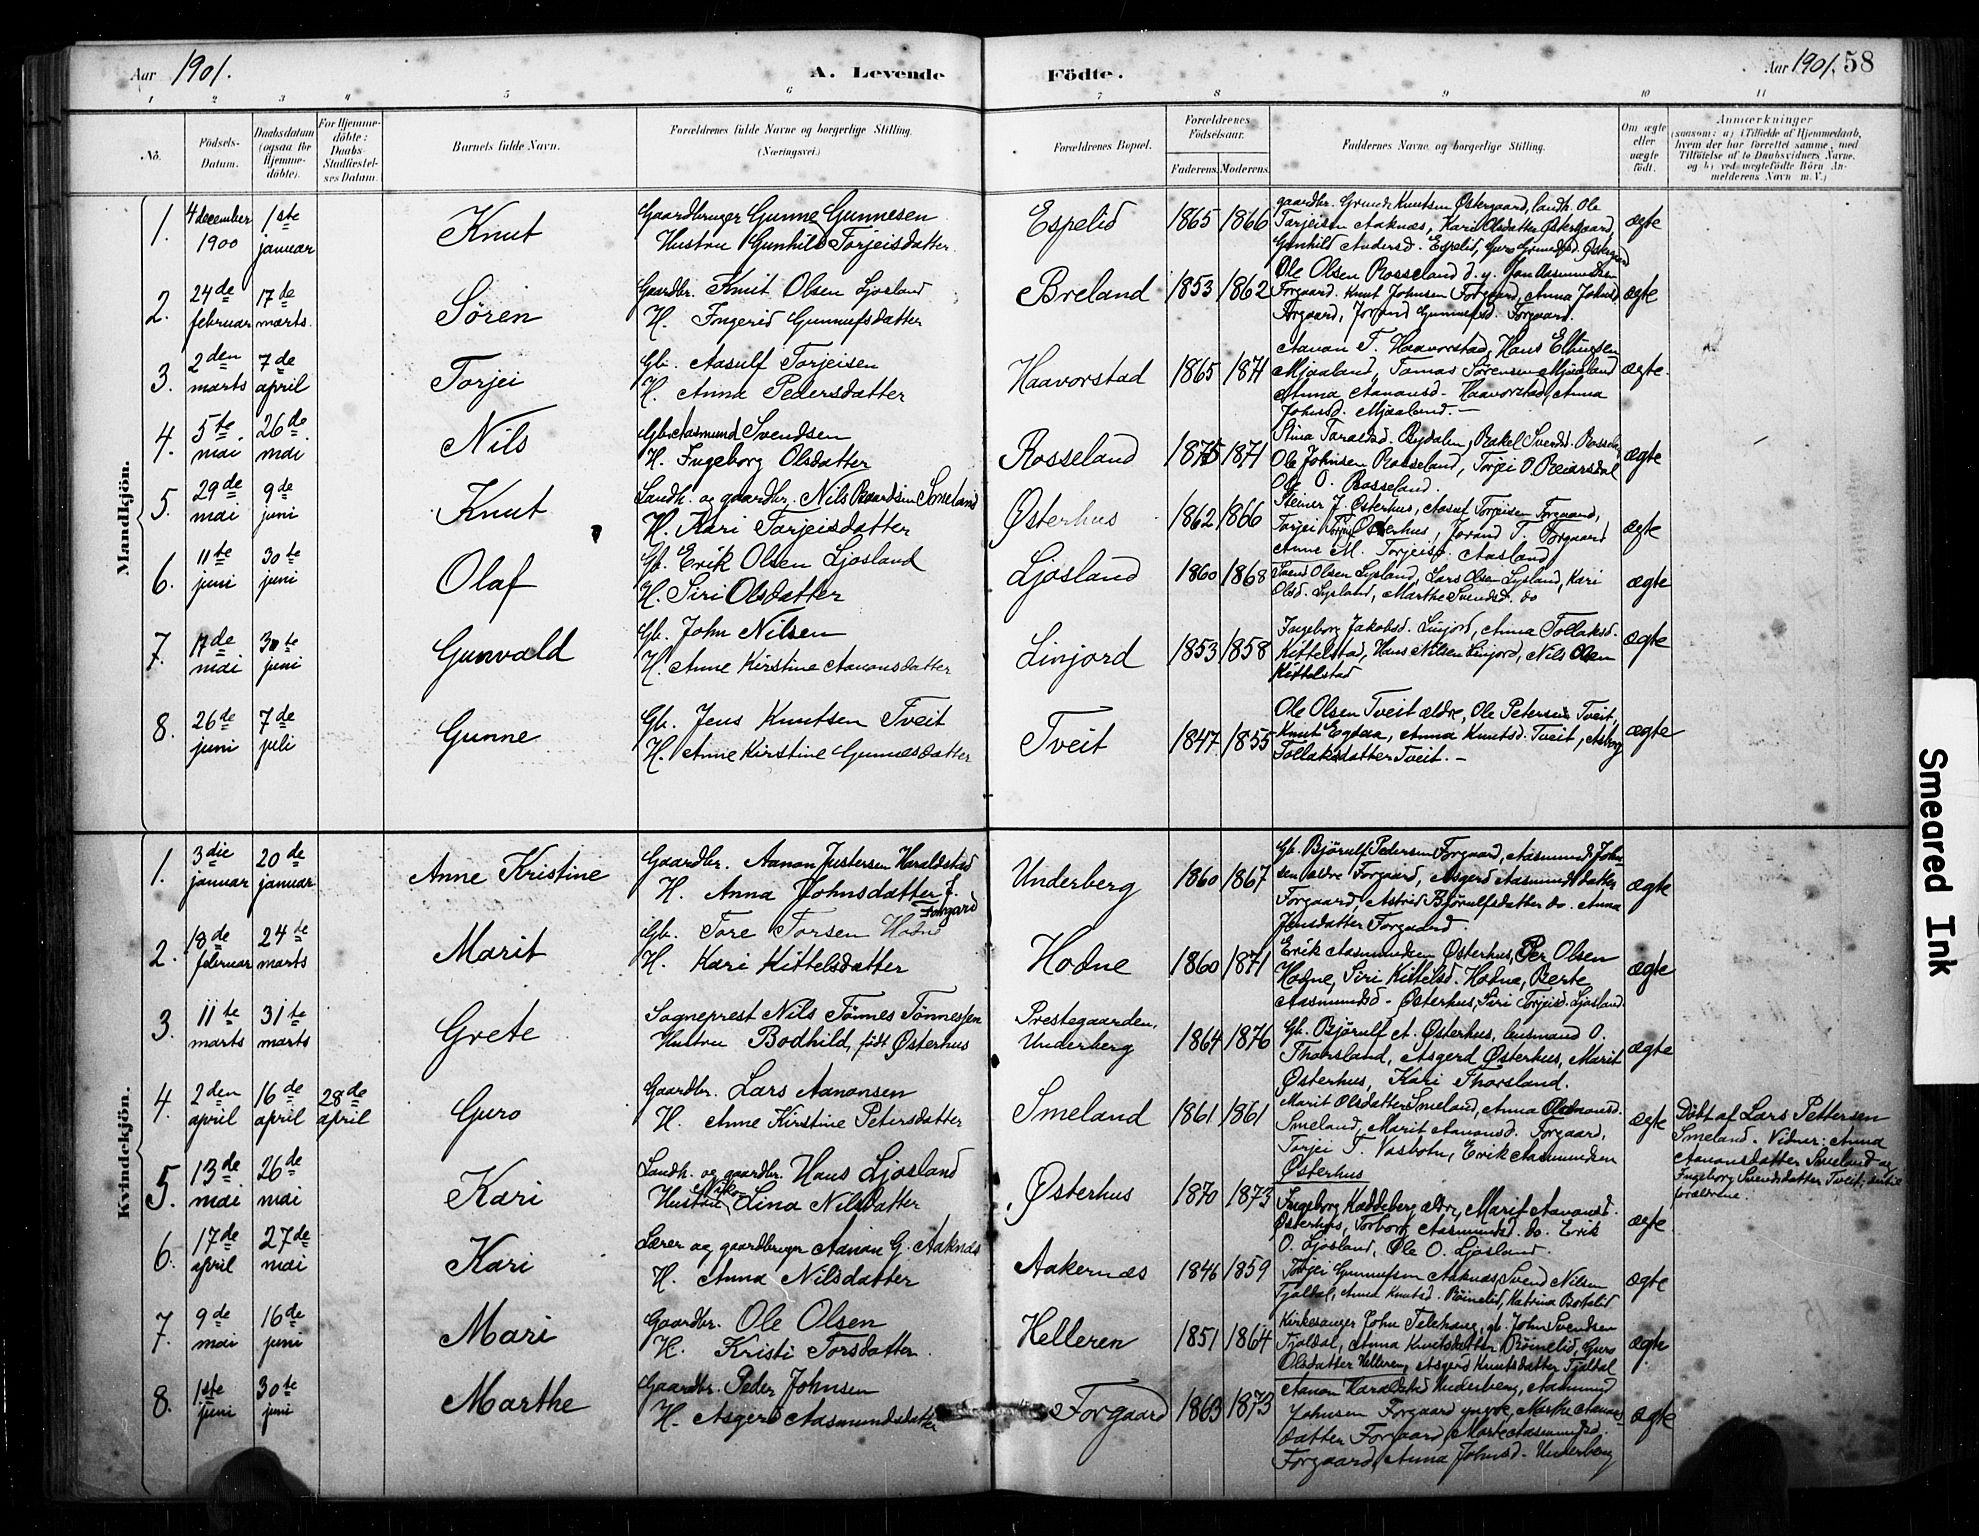 Aar 1901.
A. Levende Födte.
Aar 1901. 58
1 2 3 4 5 6 7 8 9 10 11
No.
Födsels-Datum.
Daabsdatum (ogsaa for Hjemme-döbte).
For Hjemme-döbte: Daabs-Stadfæstel-ses Datum.
Barnets fulde Navn.
Forældrenes fulde Navne og borgerlige Stilling. (Næringsvei.)
Forældrenes Bopæl.
Forældrenes Födselsaar.
Faderens. Moderens.
Faddernes Navne og borgerlige Stilling.
Om ægte eller uægte födt.
Anmærkninger
(saasom: a) i Tilfælde af Hjemmedaab, hvem der har forrettet samme, med Tilföielse af to Daabsvidners Navne, og b) ved uægtefödte Börn An-melderens Navn m. V.)
Mandkjön.
1. 4 december 1900 1ste januar Knut
Gaardbruger Gunne Gunnesen
Hustru Gunhild Torjeisdatter
Espelid 1865 1866
gaardbr. Knutsen Østergaard, landh. Ole
Tarjeisen Aaknæs, Kari Olsdatter Østergaard,
Gunhild Andersd. Espelid, Guro
ægte
2. 24de februar 17de marts. Søren
Gaardbr. Knut Olsen Ljosland
H. Gunnufsdatter
Breland 1853 1862
Ole Olsen Rosseland d.y.
Forgaard. Knut Johnsen Forgaard, Anna Johnsd.
Forgaard, Jorand Gunnufsd. Forgaard.
ægte
3. 2den marts 7de april Torjei
Gb. Aasulf Torjeisen
H. Anna Pedersdatter
Haavorstad 1865 1871
Aanon T. Haavorstad, Hans
Mjaaland, Tomas Sørensen Mjaaland
Anna Aanonsd. Haavorstad, Anna
Johnsd. Mjaaland. –
ægte.
4. 5te mai 26de mai Nils
Gb. Aasmund Svendsen
H. Ingeborg Olsdatter
Rosseland 1875 1871
Stina Taraldsd. Rakel Svendsd.
Ole Johnsen Rosseland, Torjei O.
Ole O. Rosseland.
ægte
5. 29de mai 9de juni Knut
Landh. og gaardbr. Nils Smeland
H. Kari Tarjeisdatter
Østerhus 1862 1866
Steiner J. Østerhus, Aasuf Torjeisen Forgaard,
Tarjei Østerhus, Jorand T. Forgaard
Anne M. Torjeisd. Aasland
ægte
6. 11te juni 30te juni Olaf
Gb. Erik Olsen Ljosland
H. Siri Olsdatter
Ljosland 1860 1868
Svend Olsen Lysland, Lars Olsen Lysland, Kari
Olsd. Lysland, Marthe Svendsd. do
ægte
7. 17de mai 30te juni Gunvald
Gb. John Nilsen
H. Anne Kirstine Aanonsdatter
Linjord 1853 1858
Ingeborg Jakobsd. Linjord, Anna Tollaksd.
Kittelstad, Hans Nilsen Linjord, Nils Olsen
Kittelstad
ægte
8. 26de juni 7de juli Gunne
Gb. Jens Knutsen Tveit
H. Anne Kirstine Gunnesdatter
Tveit 1847 1855
Ole Olsen Tveit ældre, Ole Petersen Tveit,
Knut Egdaa, Anna Knutsd. Tveit, Asborg
Tollaksdatter Tveit. –
ægte
Kvindekjön.
1. 3die januar 20de januar Anne Kristine
Gaardbr. Aanon Justersen Haraldstad
H. Anna Johnsdatter f. Forgard
Underberg 1860 1867
Gb. Bjørulf Pedersen Forgaard, Aasmund John-
sen ældre Forgaard, Asgerd Aasmundsdatter
Forgaard, Astrid Bjørulfsdatter do. Anna
Jensdatter Forgaard.
ægte
2. 18de februar 24de marts Marit
Gb. Tore Torsen Hodne
H. Kari Kittelsdatter
Hodne 1860 1871
Erik Aasmundsen Østerhus, Per Olsen
Hodne, Siri Kittelsd. Hodne, Berte
Aasmundsd. Østerhus, Siri Torjeisd. Ljosland
ægte
3. 11te marts 31te marts Grete
Sogneprest Nils Tønnes Tønnessen
Hustru Bodhild, født Østerhus
Prestegaarden, Underberg 1864 1876
Gb. Bjørulf A. Østerhus, lensmand O.
Thorsland, Asgerd Østerhus, Marit
Østerhus, Kari Thorsland.
ægte
4. 2den april 16de april 28de april Guro
Gaardbr. Lars Aanonsen
H. Anne Kirstine Petersdatter
Smeland 1861 1861
Marit Olsdatter Smeland, Anna
Smeland, Marit Aanonsd. Forgaard,
Torjei T. Vasbotn, Erik Aasmundsen
Østerhus
ægte
Døbt af Lars Pettersen
Smeland. Vidner: Anna
Aanonsdatter Smeland og
Ingeborg Svendsdatter Tveit,
forældrene.
5. 13de mai 26de mai Kari
Landh. og gaardbr. Hans Ljosland
Hustru Lina Nilsdatter
Østerhus 1870 1873
Ingeborg Kaddeberg ældre, Marit Aanonsd.
Østerhus, Torborg Aasmundsd. do. Erik
O. Ljosland, Ole O. Ljosland.
ægte
6. 17de april 27de mai Kari
Lærer og gaardbruger Aanon G. Aaknæs
H. Anna Nilsdatter
Aakernæs 1846 1859
Torjei Gunnufsen Aaknæs, Svend Nilsen
Fjaldal, Anna Knutsd. Røinelid, Katrina
ægte
7. 9de mai 16de juni Mari
Gaardbr. Ole Olsen
H. Kristi Torsdatter.
Helleren 1851 1864
Kirkesanger John Telehaug, gb. John Svendsen
Fjaldal, Anna Knutsdatter Røinelid, Guro
Olsdatter Helleren, Asgerd Knutsdatter Fjaldal
ægte
8. 1ste juni 30te juni Marthe
Gaardbr. Peder Johnsen
H. Asgerd Aasmundsdatter
Forgaard 1863 1873
Aanon Haraldstad Underberg, Aasmund
Johnsen Forgaard yngre, Marthe Aanons-
datter Forgaard, Marte Aasmundsd.
Forgaard, Anna Johnsd. Underberg
ægte
Smeared Ink